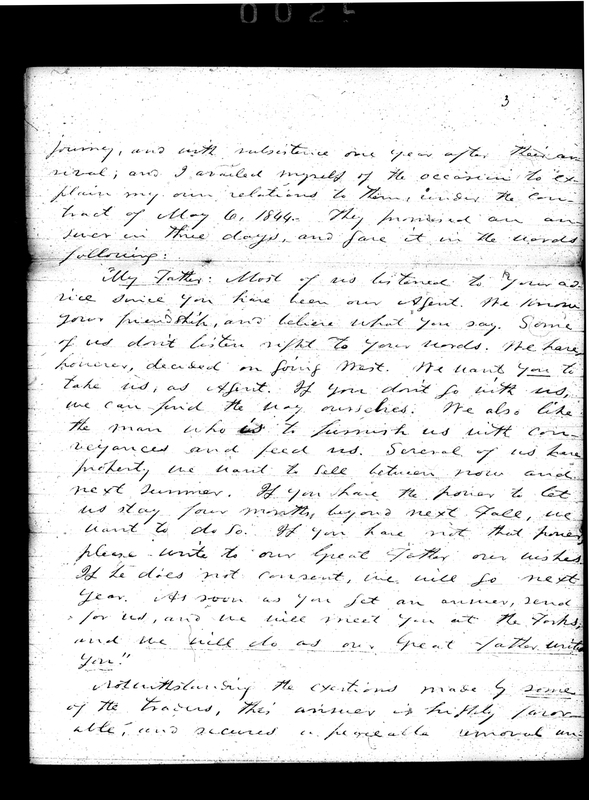 0025
3
journey, and with subsistence one year after their ar-
rival; and I availed myself of the occasion to ex-
plain my own relations to them, under the con-
tract of May 6, 1844. They promised an an-
swer in three days, and gave it in the words
following:
"My Father: Most of us listened to your ad-
vice since you have been our Agent. We know
your friendship, and believe what you say. Some
of us don't listen right to your words. We have,
however, decided on going West. We want you to
take us, as Agent. If you don't go with us,
we can find the way ourselves. We also like
the man who is to furnish us with con-
veyances and feed us. Several of us have
property we want to sell between now and
next summer. If you have the power to let
us stay four months, beyond next Fall, we
want to do so. If you have not that power
please write to our Great Father our wishes.
If he does not consent, we will go next
year. As soon as you get an answer, send
for us, and we will meet you at the Forks,
and we will do as our Great Father writes
you."
Notwithstanding the exertions made by some
of the traders, this answer is highly favor-
able, and secures a peaceable removal an-